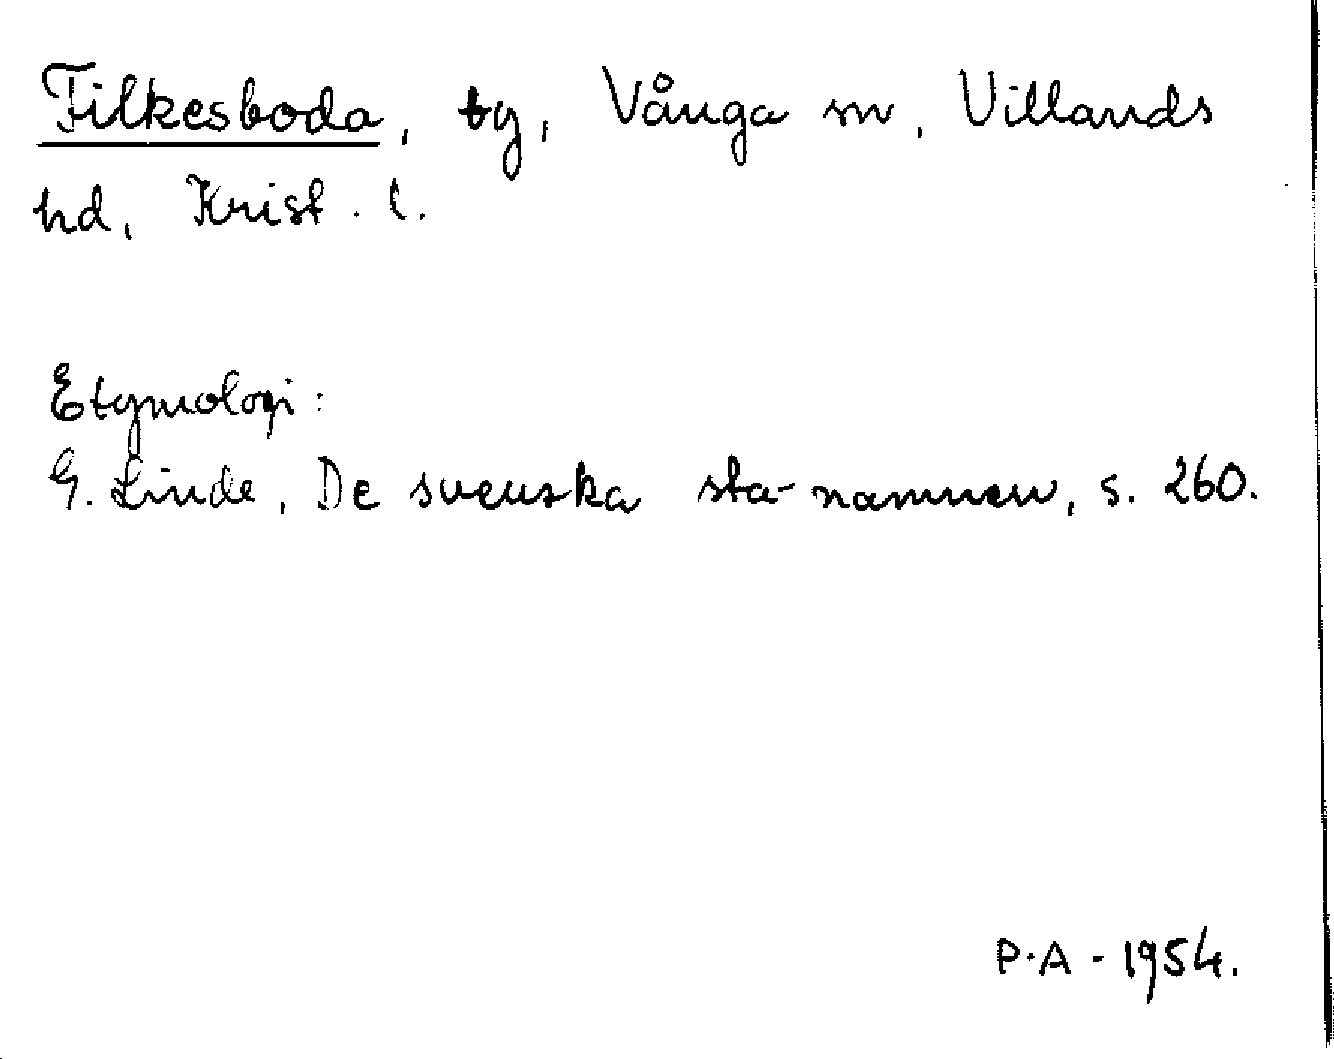 Filkesboda, by, Vånga sn, Villands
hd, Krist. l.
Etymologi:
G. Linde, De svenska sta-namnen, s. 260.
P.A - 1954.